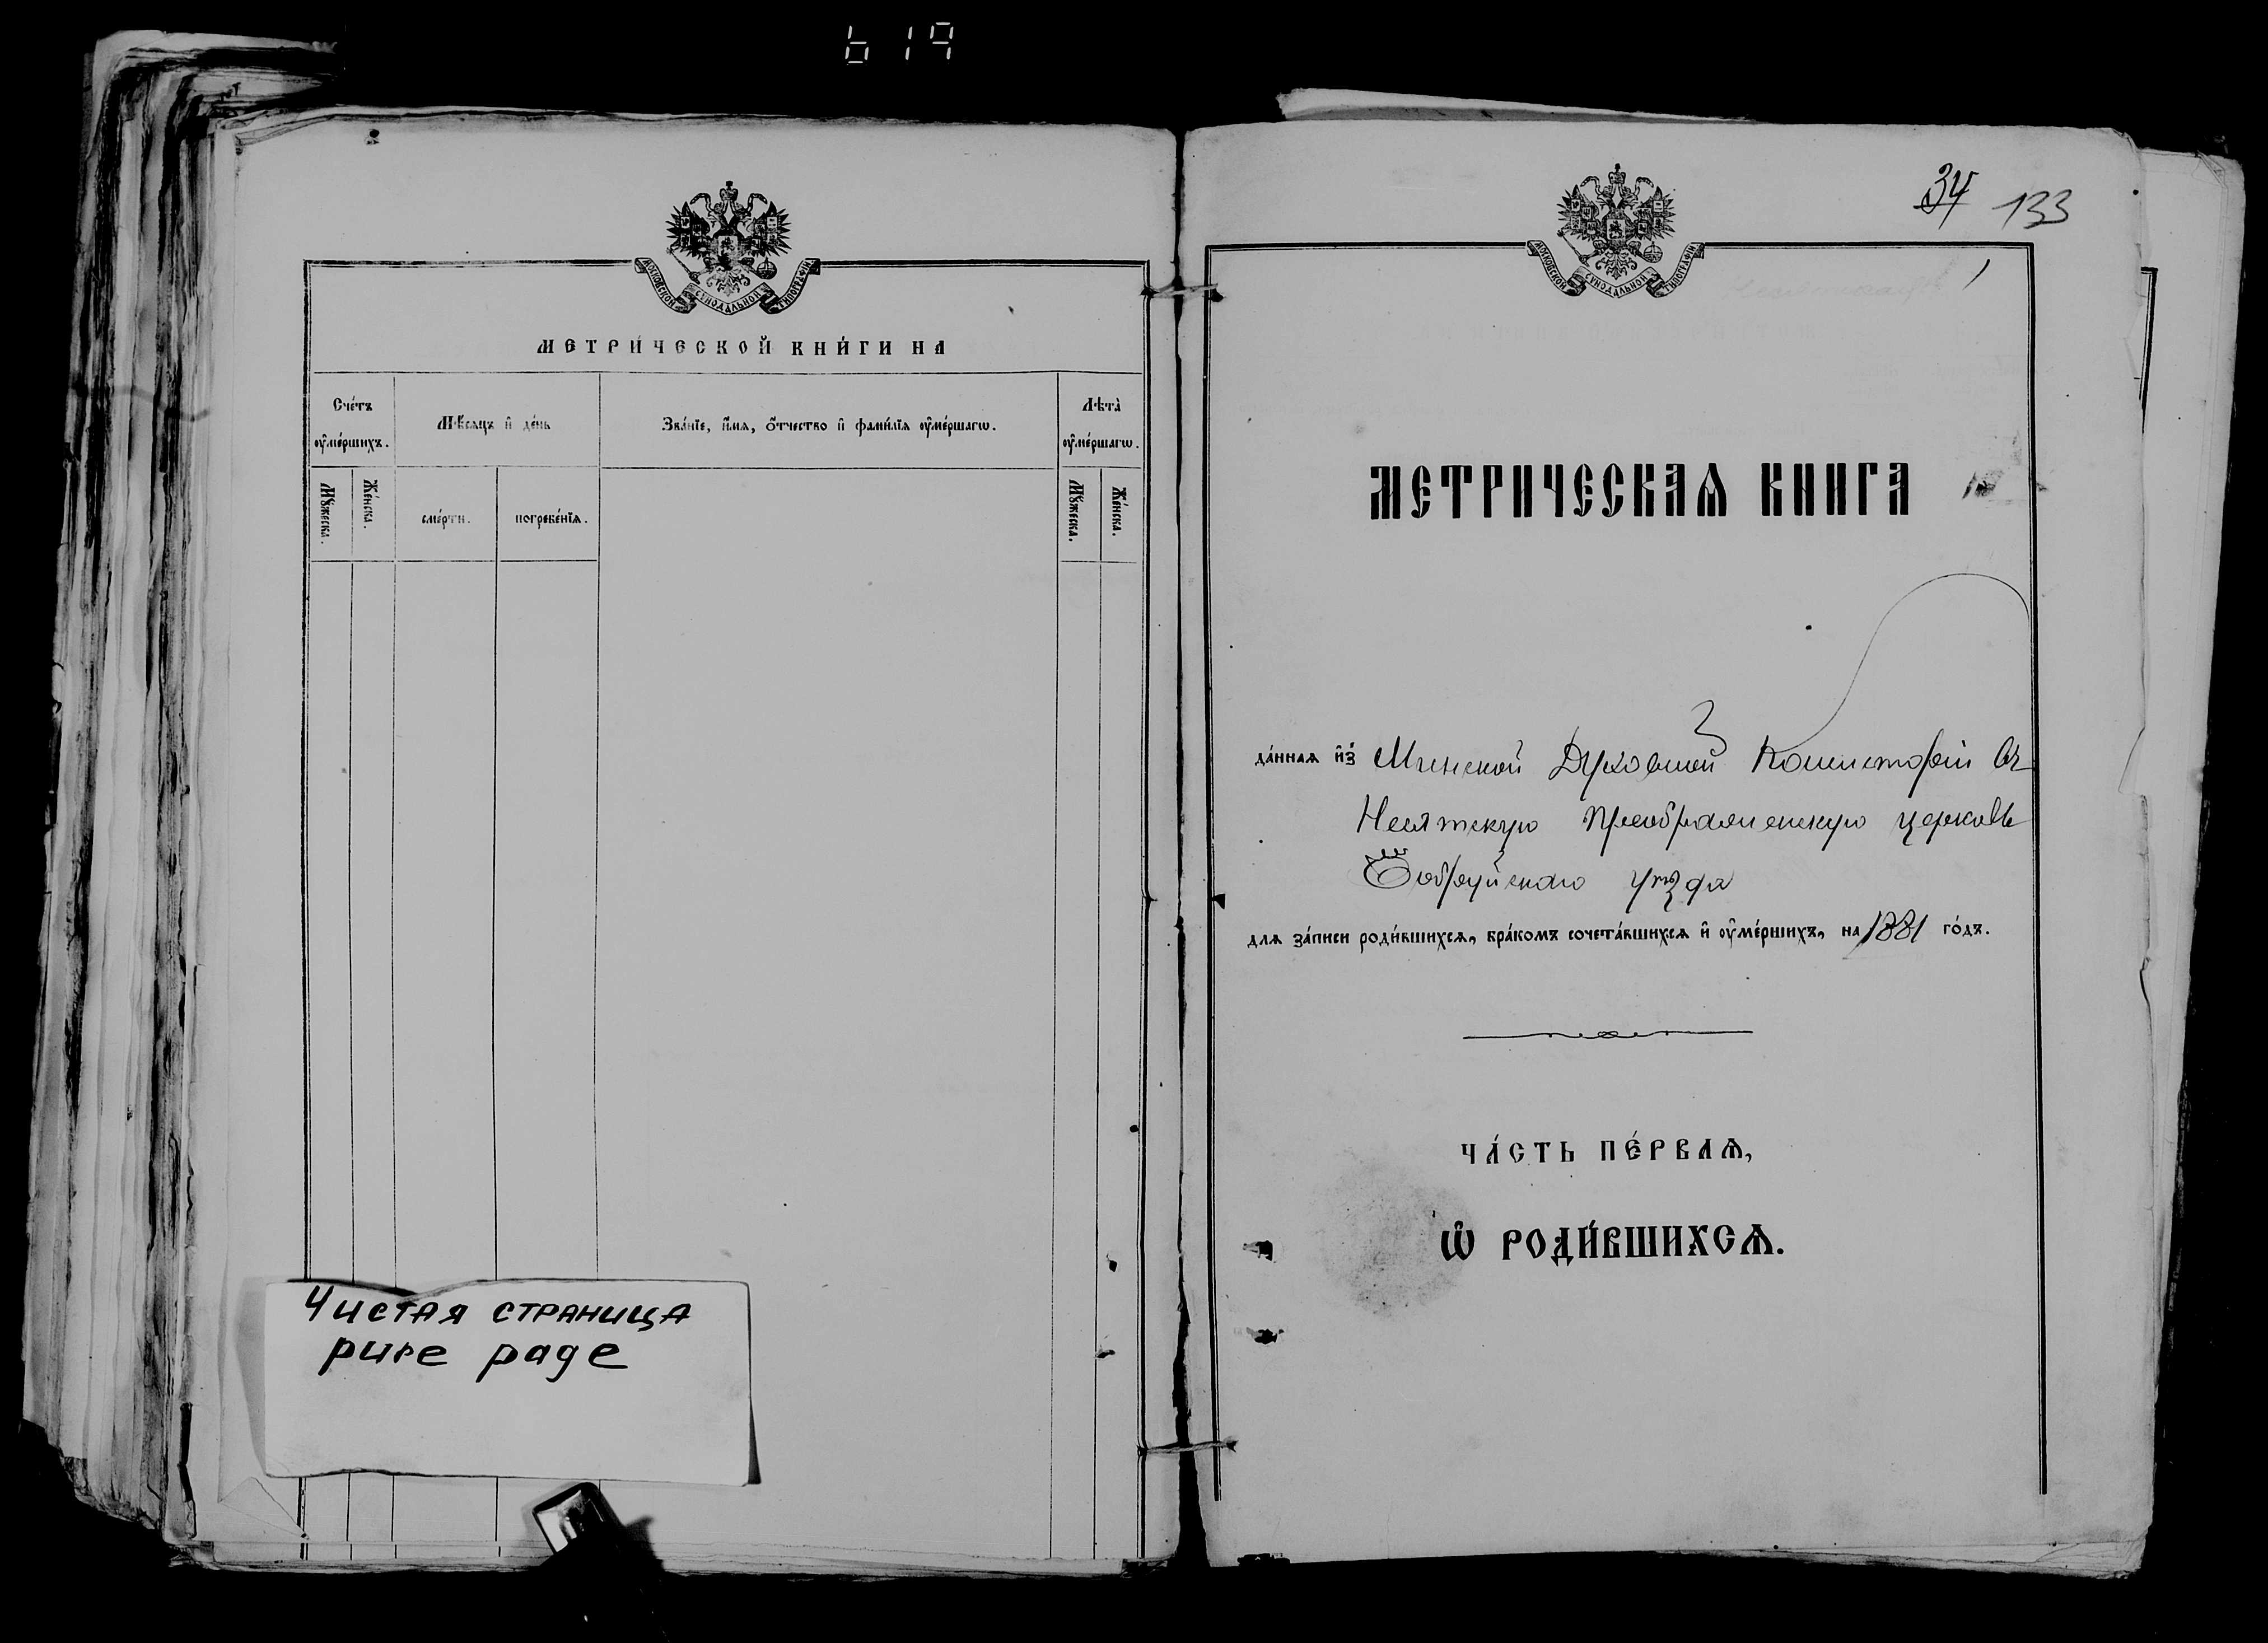 619
МОСКОВСКОЙ СѴНОДАЛЬНОЙ ТИПОГРАФІИ
МЕТРИ́ЧЕСКОЙ КНИ́ГИ НА
Сче́тъ ᲂу҆ме́ршихъ.
Мѣ́сѧцъ и҆ де́нь
Зва́нїе, и҆́мѧ, ѻ҆́тчество и҆ фами́лїѧ ᲂу҆ме́ршагѡ.
Лѣта̀ ᲂу҆ме́ршагѡ.
Мꙋ́жеска.
Же́нска.
сме́рти.
погребе́нїѧ.
Мꙋ́жеска.
Же́нска.
Чистая страница
pure page
34 133
МОСКОВСКОЙ СѴНОДАЛЬНОЙ ТИПОГРАФІИ
1
МЕТРИЧЕСКАѦ КНИГА
да́ннаѧ и҆з̾ Минской Духовной Консисторіи въ
Несятскую Преображенскую церковь
Бобруйскаго уѣзда
длѧ за́писи роди́вшихсѧ, бра́комъ сочета́вшихсѧ и҆ ᲂу҆ме́ршихъ, на 1881 го́дъ.
ЧА́СТЬ ПЕ́РВАѦ,
Ѽ РОДИ́ВШИХСѦ.